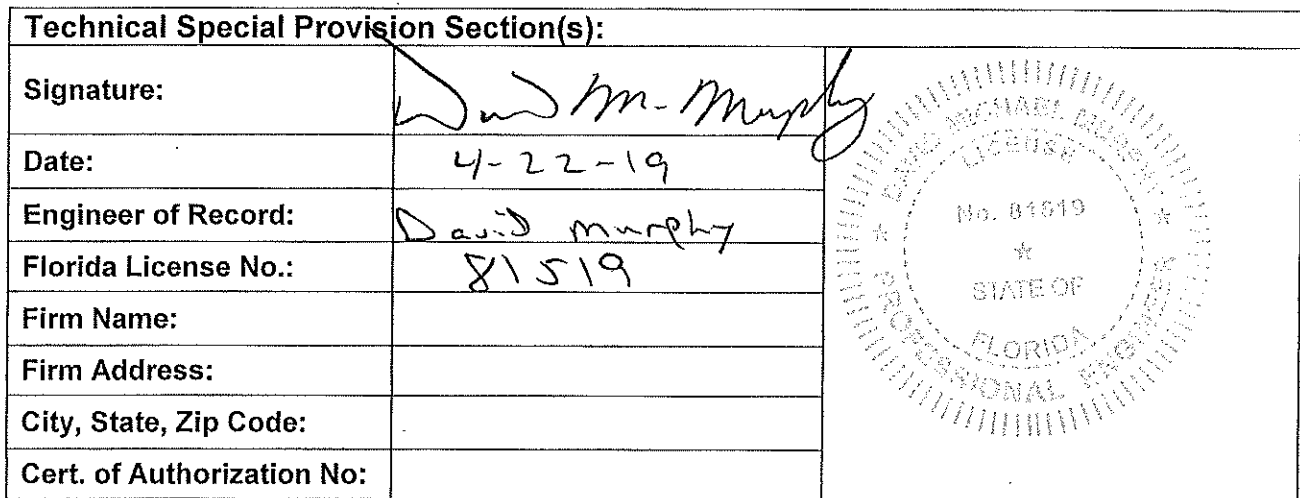 Technical Special Provision Section(s):
Signature: David M. Murphy
Date: 4-22-19
Engineer of Record: David Murphy
Florida License No.: 81519
Firm Name:
Firm Address:
City, State, Zip Code:
Cert. of Authorization No:
DAVID MICHAEL MURPHY
LICENSE
No. 81519
STATE OF
FLORIDA
PROFESSIONAL ENGINEER